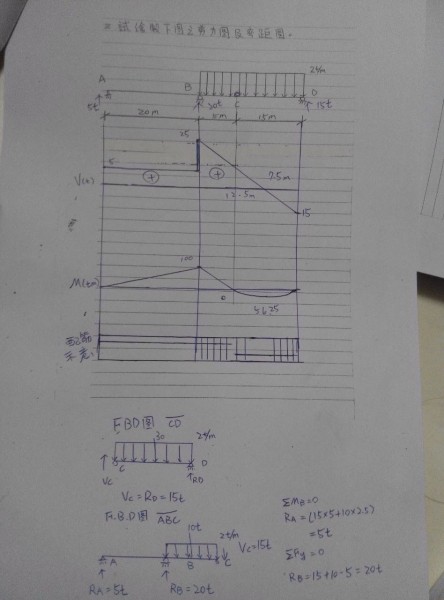 二 試繪製下圖之剪力圖及彎距圖。
A B 2t/m
C D
5t 20t 15t
20m 5m 15m
25
5 (+) (+) 7.5m
V(t) 12.5m 15
100
M(tm) 0
5.625
F.B.D圖 CD
30 2t/m
C D
Vc RD
Vc=RD=15t
F.B.D圖 ABC
10t 2t/m Vc=15t
A B C
RA=5t RB=20t
ΣMB=0
RA=(15×5+10×2.5)
=5t
ΣFy=0
RB=15+10-5=20t